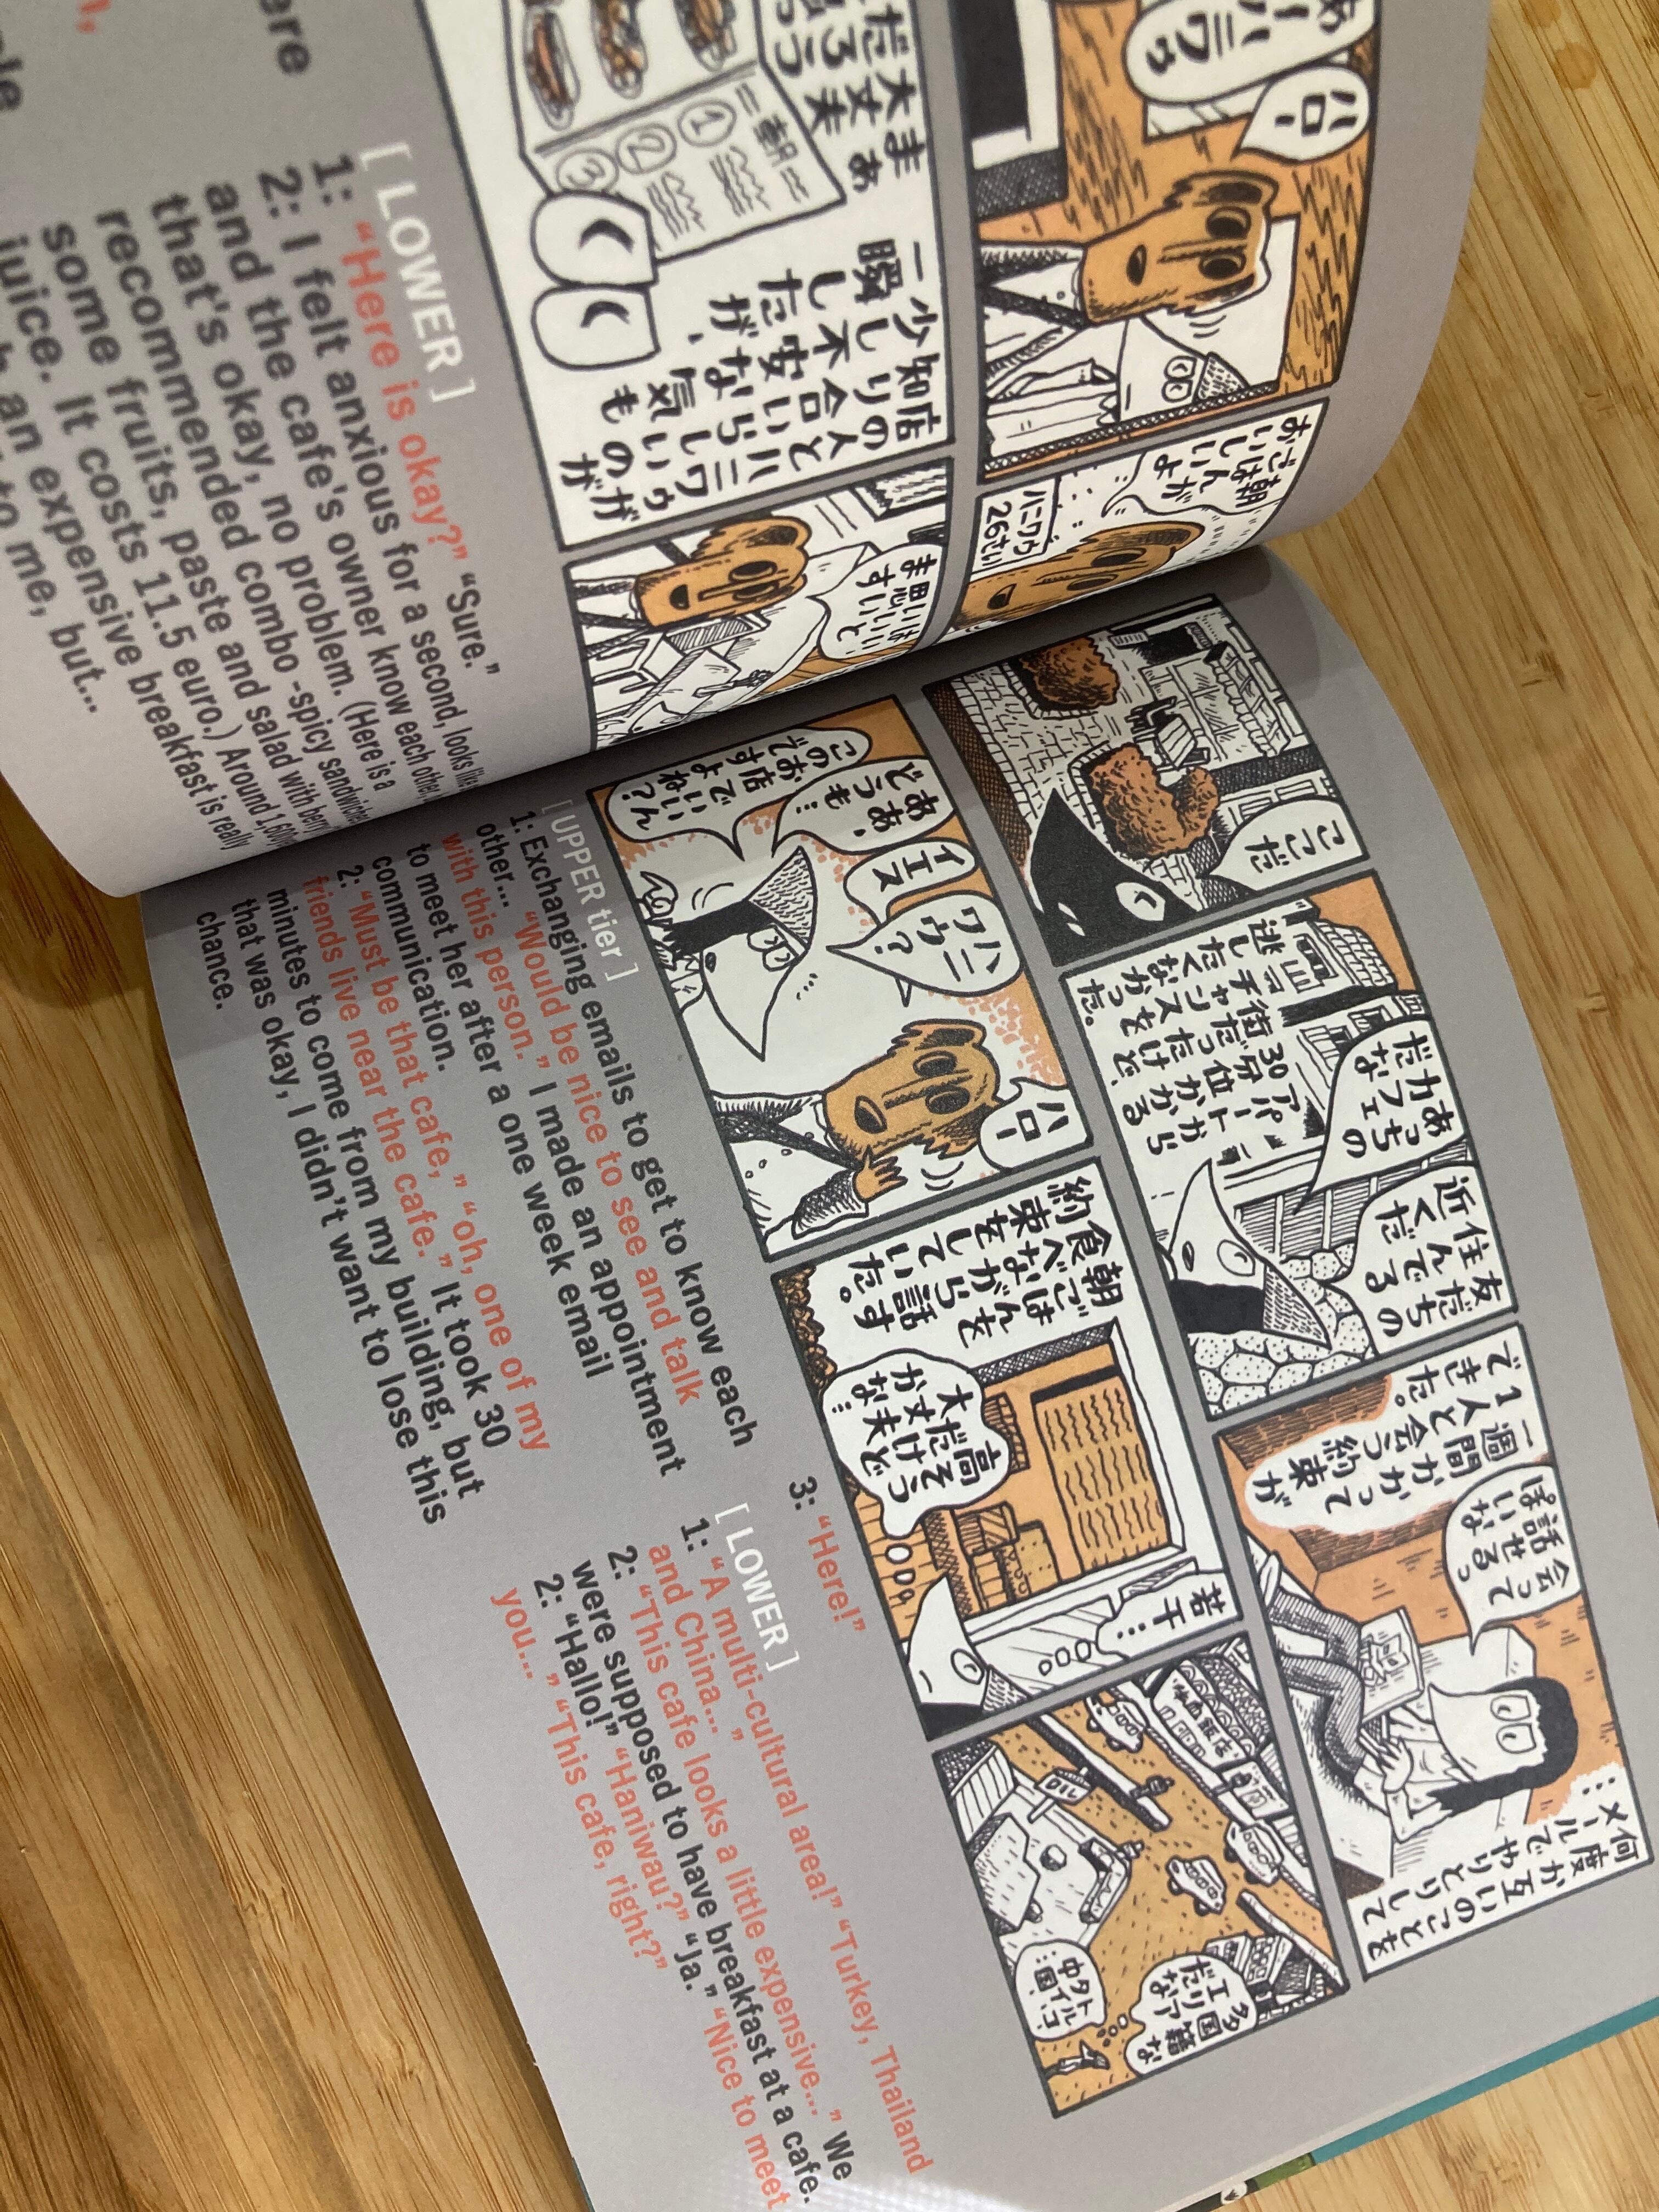 ハロー
朝ごはんがおいしいよ
ハニワゥ
26さい
はい
いいと思います
一瞬
少し不安
まあ
大丈夫
だろう
朝
1
2
3
ere
[ LOWER ]
1: “Here is okay?” “Sure.”
2: I felt anxious for a second, looks like
and the cafe's owner know each other,
that's okay, no problem. (Here is a
recommended combo -spicy sandwiches
some fruits, paste and salad with berry
juice. It costs 11.5 euro.) Around 1,600
an expensive breakfast is really
to me, but...
何度か互いのことを
メールでやりとりして
…
会って
話せるっ
ぽいな
1週間かかって
人と会う約束が
できた。
友だちの
住んでる
近くだ
あっちの
カフェ
だな
アパートから
30分位かかる
街だったけど、
チャンスを
逃したくなかった。
ここだ
多国籍な
エリア
だな
トルコ、
タイ、
中国…
OIL
若干…
高そう
だけど
大丈夫
かな…
朝ごはんを
食べながら話す
約束をしていた。
ハロー
ハニワウ?
イエス
ああ、
どうも…
このお店で
いいんですよね?
[ UPPER tier ]
1: Exchanging emails to get to know each
other... “Would be nice to see and talk
with this person. ” I made an appointment
to meet her after a one week email
communication.
2: “Must be that cafe, ” “oh, one of my
friends live near the cafe. ” It took 30
minutes to come from my building, but
that was okay, I didn't want to lose this
chance.
3: “Here!”
[ LOWER ]
1: “A multi-cultural area!” “Turkey, Thailand
and China... ”
2: “This cafe looks a little expensive... ” We
were supposed to have breakfast at a cafe.
2: “Hallo!” “Haniwau?” “Ja. ” “Nice to meet
you... ” “This cafe, right?”